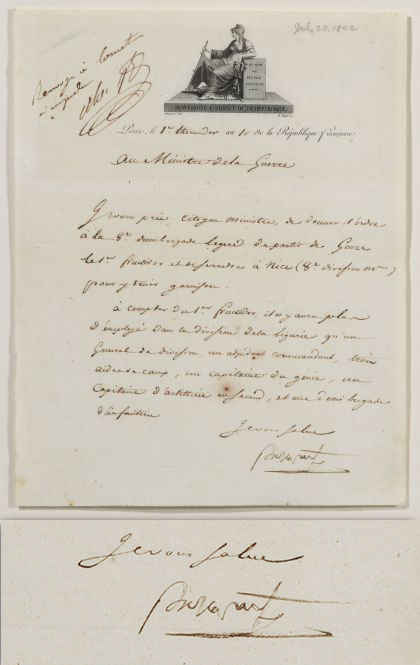 July 20, 1802
Renvoyé à
AU NOM DU PEUPLE FRANÇAIS
BONAPARTE, 1ER CONSUL DE LA RÉPUBLIQUE.
le 1er thermidor an 10 de la République française
Au Ministre de la Guerre
Je vous prie, citoyen ministre, de donner l'ordre
à la 8e demi brigade legere de partir de Genes
le 1er fructidor et de se rendre à Nice (8e division mre)
pour y tenir garnison.
à compter du 1er fructidor, il n'y aura plus
d'employé dans la division de la ligurie qu'un
General de division, un adjudant commandant, trois
aides de camp, un capitaine du genie, un
Capitaine d'artillerie en second, et une demi brigade
d'infanterie
Je vous salue
Bonaparte
Je vous salue
Bonaparte